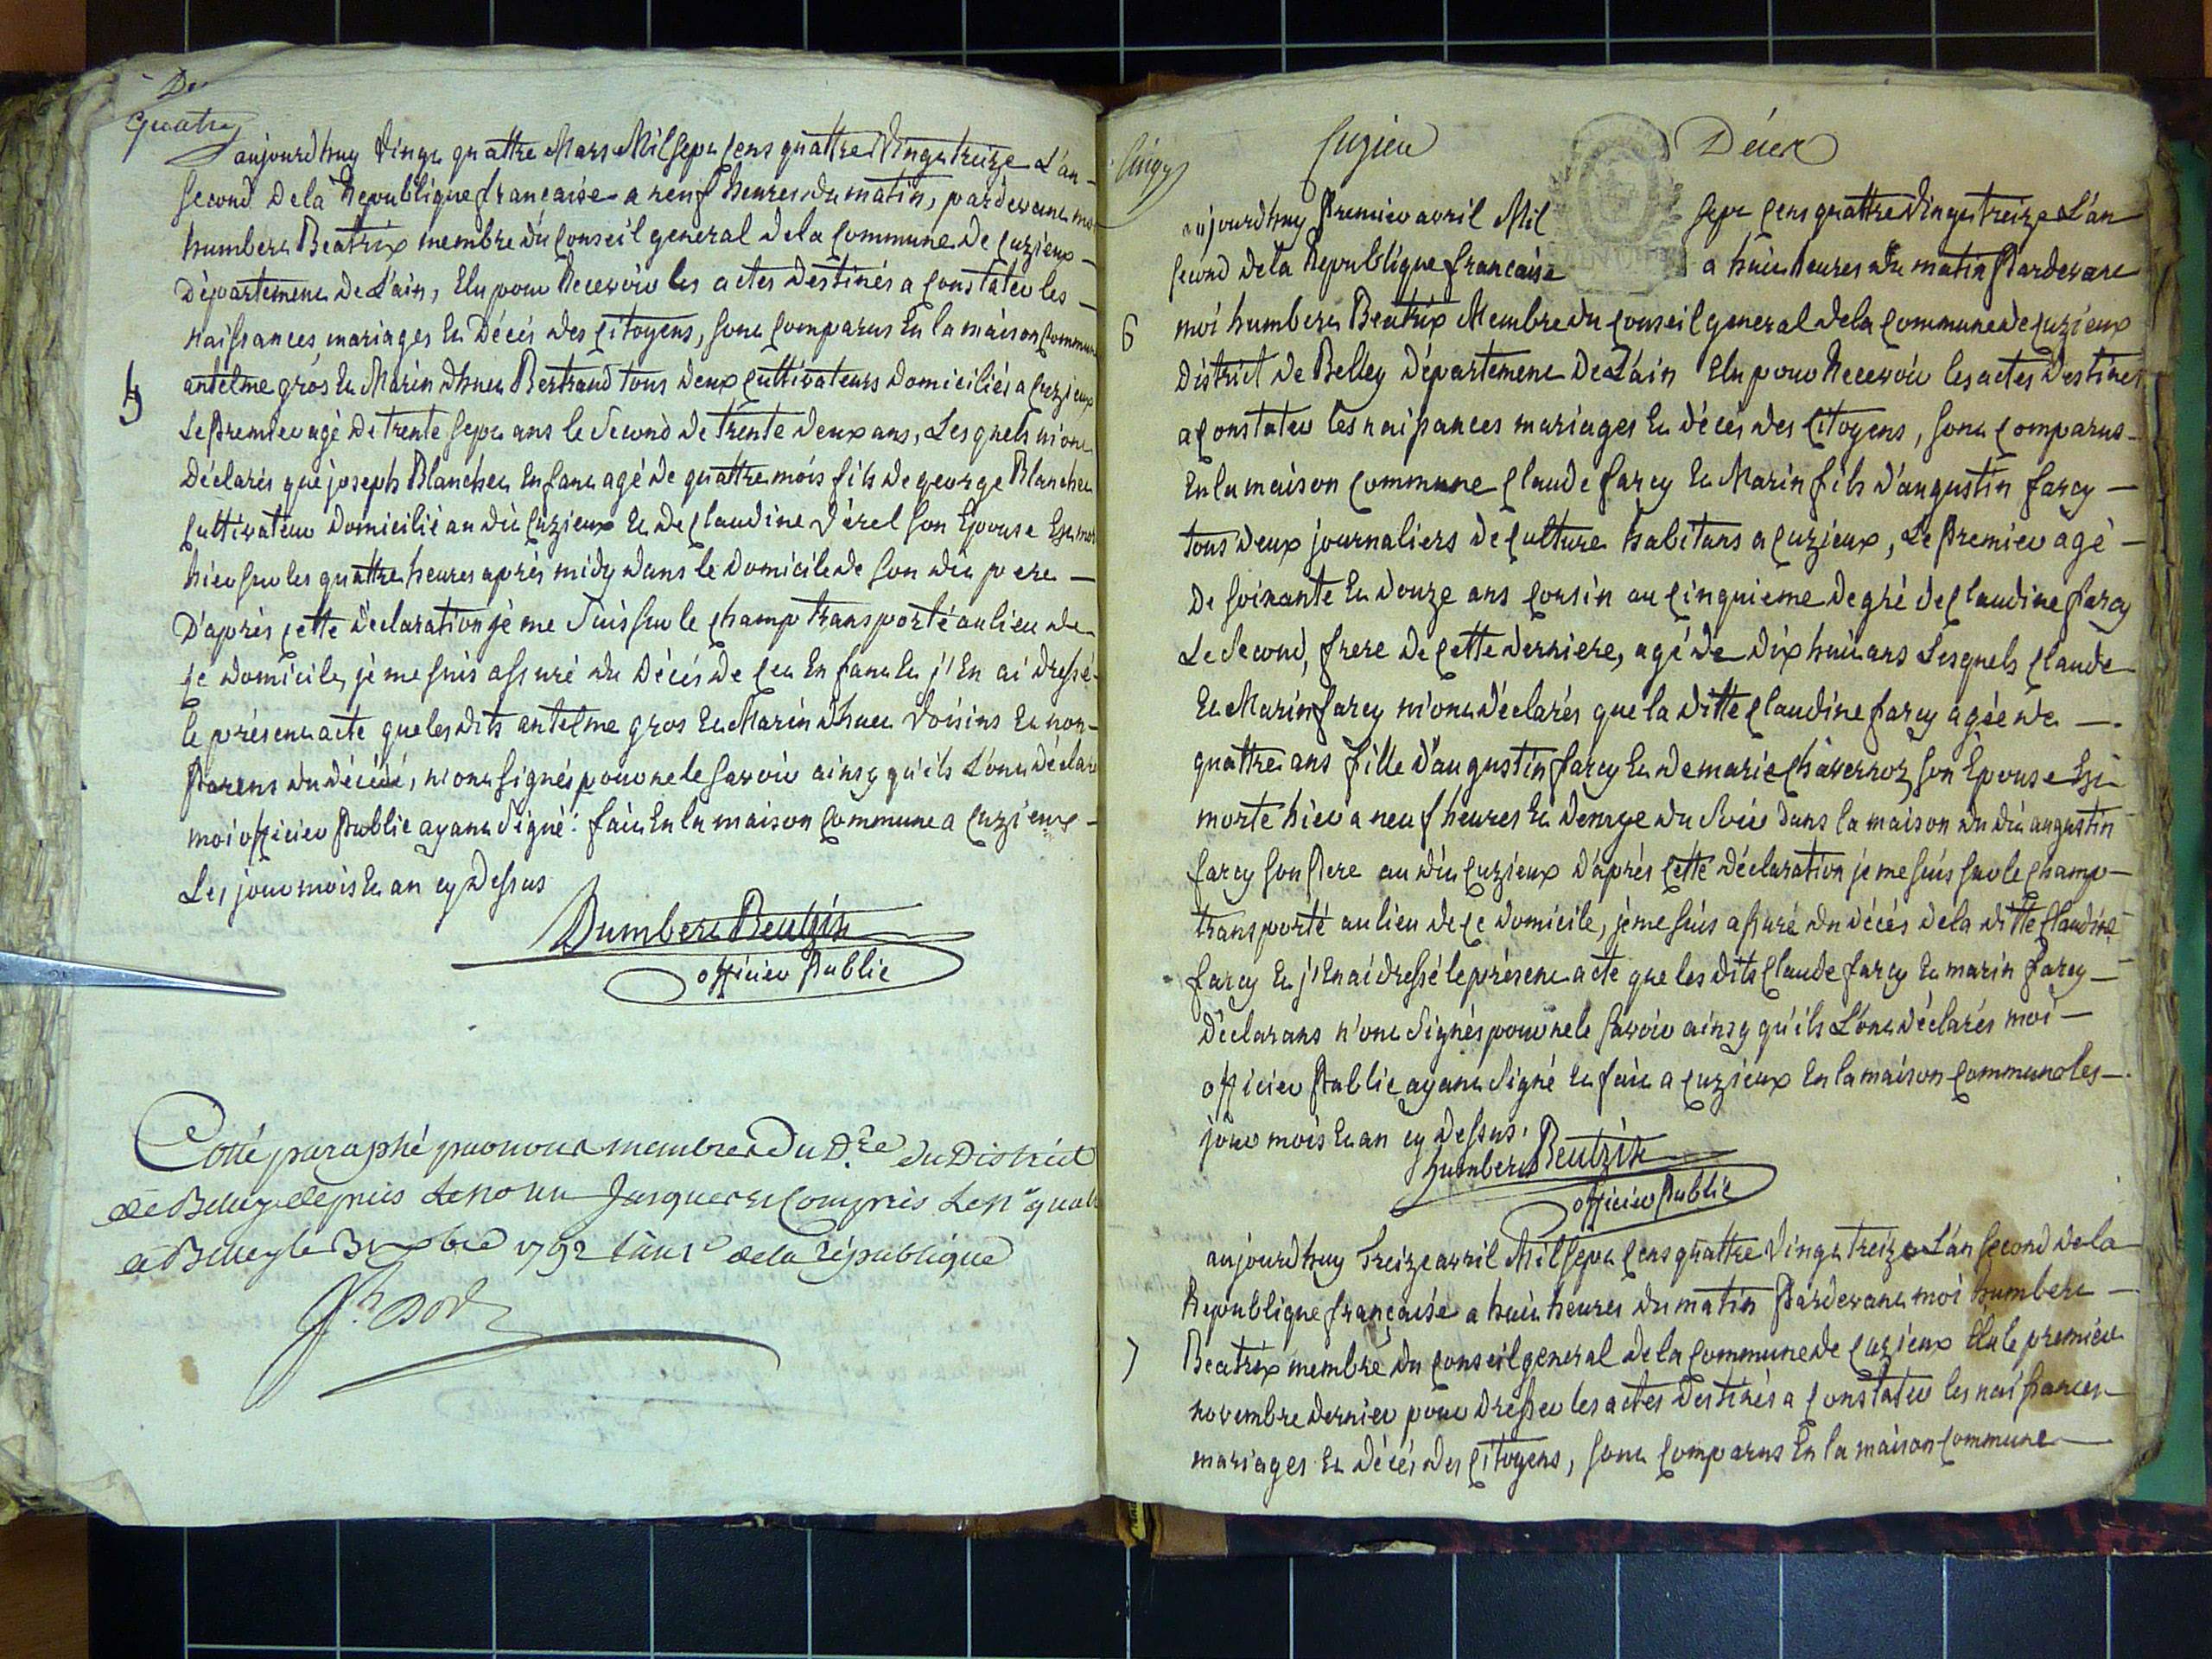 De
quatre
aujourdhuy vingt quattre Mars Mil sept cens quattre Vingt treize L'an
second de la Republique francaise a neuf heures du matin, pardevant moi
humbert Beatrix membre du conseil general de la commune de cuzieux
Département de L'ain, Elu pour Recevoir les actes destinés a constater les
naissances, mariages et Décés des citoyens, sont comparus En la maison commune
5
antelme gros et Marin dhuet Bertrand tous deux cultivateurs domiciliés a cuzieux
Le premier agé de trente sept ans le second de trente deux ans, Lesquels m'ont
Déclarés que joseph Blanchet Enfant agé de quattre mois fils de george Blanchet
cultivateur domicilié au dit cuzieux et de claudine dérel son Epouse Est mort
hier sur les quattre heures aprés midy dans le domicile de son dit pere
D'aprés cette déclaration je me suis sur le champ transporté au lieu de
ce domicile, je me suis assuré du Décés de cet Enfant et j'En ai dressé
le présent acte que lesdits antelme gros et Marin dhuet voisins et non
parens du décédé, n'ont signés pour ne le savoir ainsy qu'ils L'ont déclaré
moi officier public ayant signé. fait En la maison commune a cuzieux
Les jour mois et an cy dessus
humbert Beatrix
officier public
Cotté paraphé par nous membres du D.re du District
de Belley depuis le no un jusques et compris le no quatre
à Belley le 3 Xbre 1792 L'an 1er de la république
Cinq
Cuzieu
Décer
aujourdhuy premier avril Mil sept cens quattre Vingt treize L'an
second de la Republique francaise a huit heures du matin pardevant
6
moi humbert Beatrix Membre du conseil general de la commune de cuzieux
District de Belley Département de L'ain Elu pour Recevoir les actes destinés
a constater les naissances mariages et décés des citoyens, sont comparus
En la maison commune claude farcy et Marin fils d'augustin farcy
tous deux journaliers de culture habitans a cuzieux, Le premier agé
de soixante et douze ans cousin au cinquieme degré de claudine farcy
Le second, frere de cette derniere, agé de dix huit ans Lesquels claude
et Marin farcy m'ont déclarés que la ditte claudine farcy agée de
quattre ans fille d'augustin farcy et de marie chaverroz son Epouse Est
morte hier a neuf heures et demye du soir dans la maison du dit augustin
farcy son pere au dit cuzieux d'aprés cette déclaration je me suis sur le champ
transporté au lieu de ce domicile, je me suis assuré du décés de la ditte claudine
farcy et j'En ai dressé le présent acte que les dits claude farcy et marin farcy
Déclarans n'ont signés pour ne le savoir ainsy qu'ils L'ont déclarés moi
officier public ayant signé et fait a cuzieux En la maison commune les
jour mois et an cy dessus.
humbert Beatrix
officier public
aujourdhuy treize avril Mil sept cens quattre Vingt treize L'an second de la
Republique française a huit heures du matin pardevant moi humbert
7
Beatrix membre du conseil general de la commune de cuzieux Elu le premier
novembre dernier pour dresser les actes destinés a constater les naissances
mariages et décés des citoyens, sont comparus En la maison commune